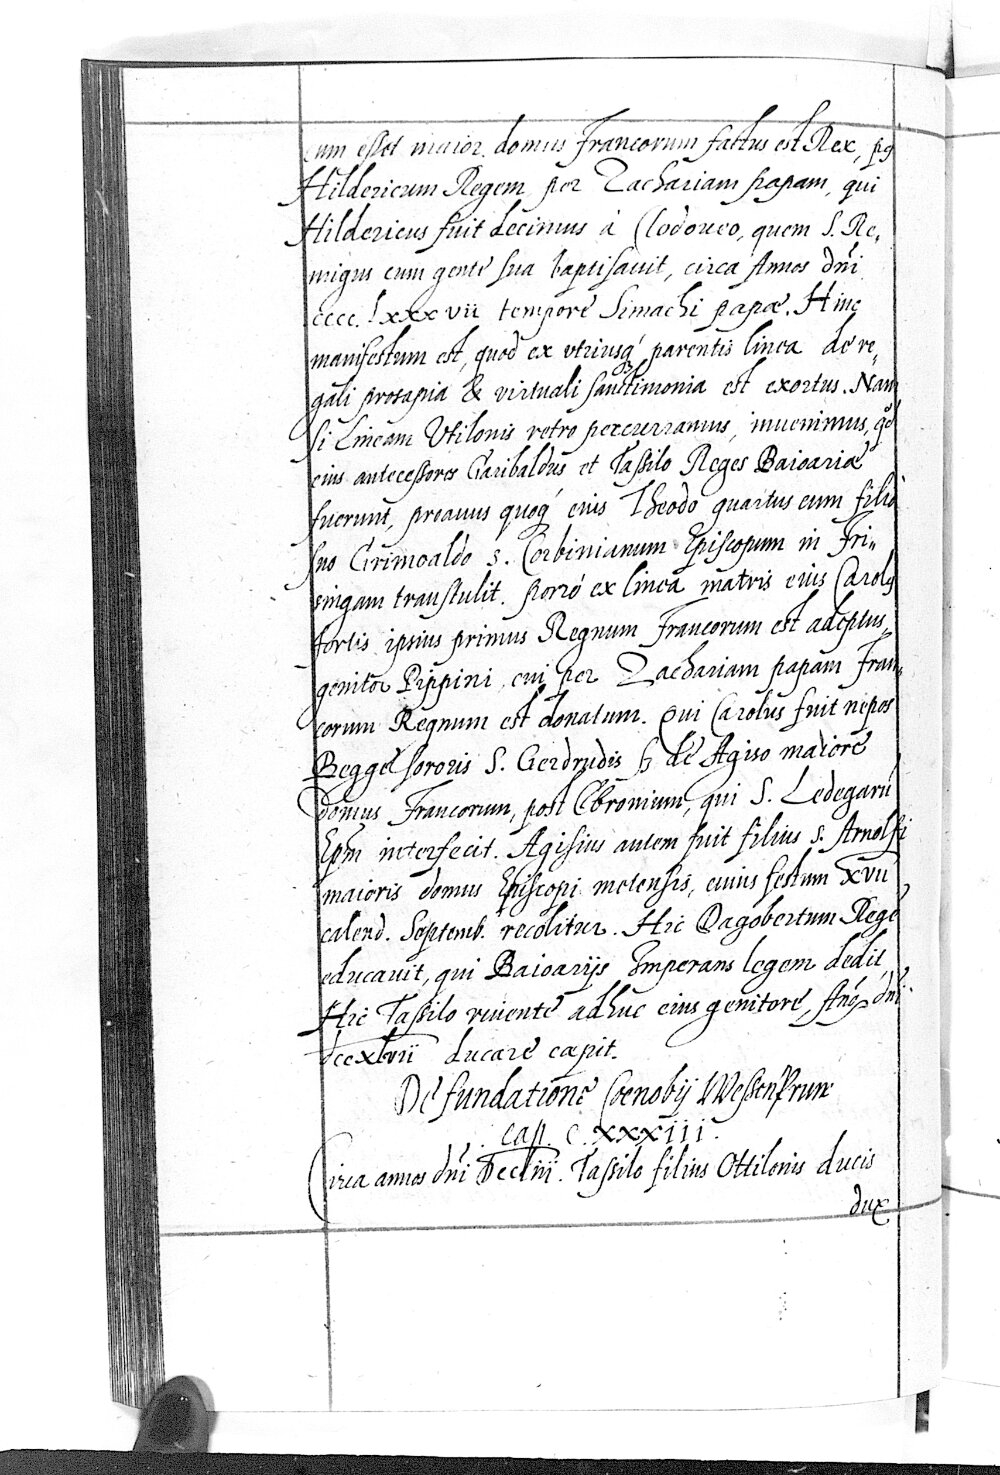 cum esset maior domus Francorum factus est Rex, pꝰ
Hildericum Regem per Zachariam papam, qui
Hildericus fuit decimus à Clodoueo, quem S. Re„
migius cum gente sua baptisauit, circa Annos dñi
cccc.lxxxvii tempore Simachi papæ. Hinc
manifestum est, quod ex vtriusq́ parentis linea de re„
gali prosapia & virtuali sanctimonia est exortus. Nam
si Lineam Vtilonis retro percurramus, inuenimus, qđ
eius antecessores Garibaldus et Tassilo Reges Baioariæ
fuerunt, preauus quoq́ eius Theodo quartus cum filio
suo Grimoaldo s. Corbinianum Episcopum in Fri„
singam transtulit. Porró ex linea matris eius Carolꝰ
fortis ipsius primus Regnum Francorum est adeptus,
genitor Pippini, cui per Zachariam papam Fran„
corum Regnum est donatum. Qui Carolus fuit nepos
Beggę sororis S. Gerdrudis de Agiso maiore
domus Francorum, post Ebronium, qui S. Ledegariū
Epm interfecit. Agisius autem fuit filius s. Arnolfi
maioris domus Episcopi metensis, cuius festum XVII
calend. Septemb. recolitur. Hic Dagobertum Regē
educauit, qui Baioarijs Imperans legem dedit,
Hic Tassilo viuente adhuc eius genitore, Anō dñi
dccxlvii ducare capit.
De fundatione Coenobij Wessenprun
cap. c.xxxiii.
Circa annos dñi Dccliii. Tassilo filius Ottilonis ducis
dux